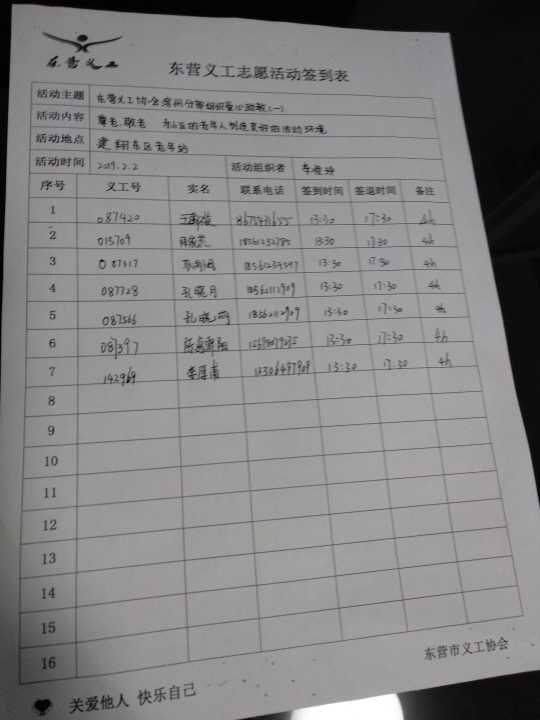 东营义工
东营义工志愿活动签到表
活动主题 东营义工协会 分 组织爱心 (一)
活动内容 尊老.敬老 为小区的老年人创造良好的活动环境
活动地点 建翔东区老年站
活动时间 2019.2.2 活动组织者 李
序号 义工号 实名 联系电话 签到时间 签退时间 备注
1 087420 13:30 17:30 4h
2 015709 18561252785 13:30 17:30 4h
3 13:30 17:30 4h
4 087728 孔晓月 18562112909 13:30 17:30 4h
5 087566 孔晓 18562112909 13:30 17:30 4h
6 087397 13:30 17:30 4h
7 142969 李厚甫 13306497909 13:30 17:30 4h
8
9
10
11
12
13
14
15
16
东营市义工协会
关爱他人 快乐自己